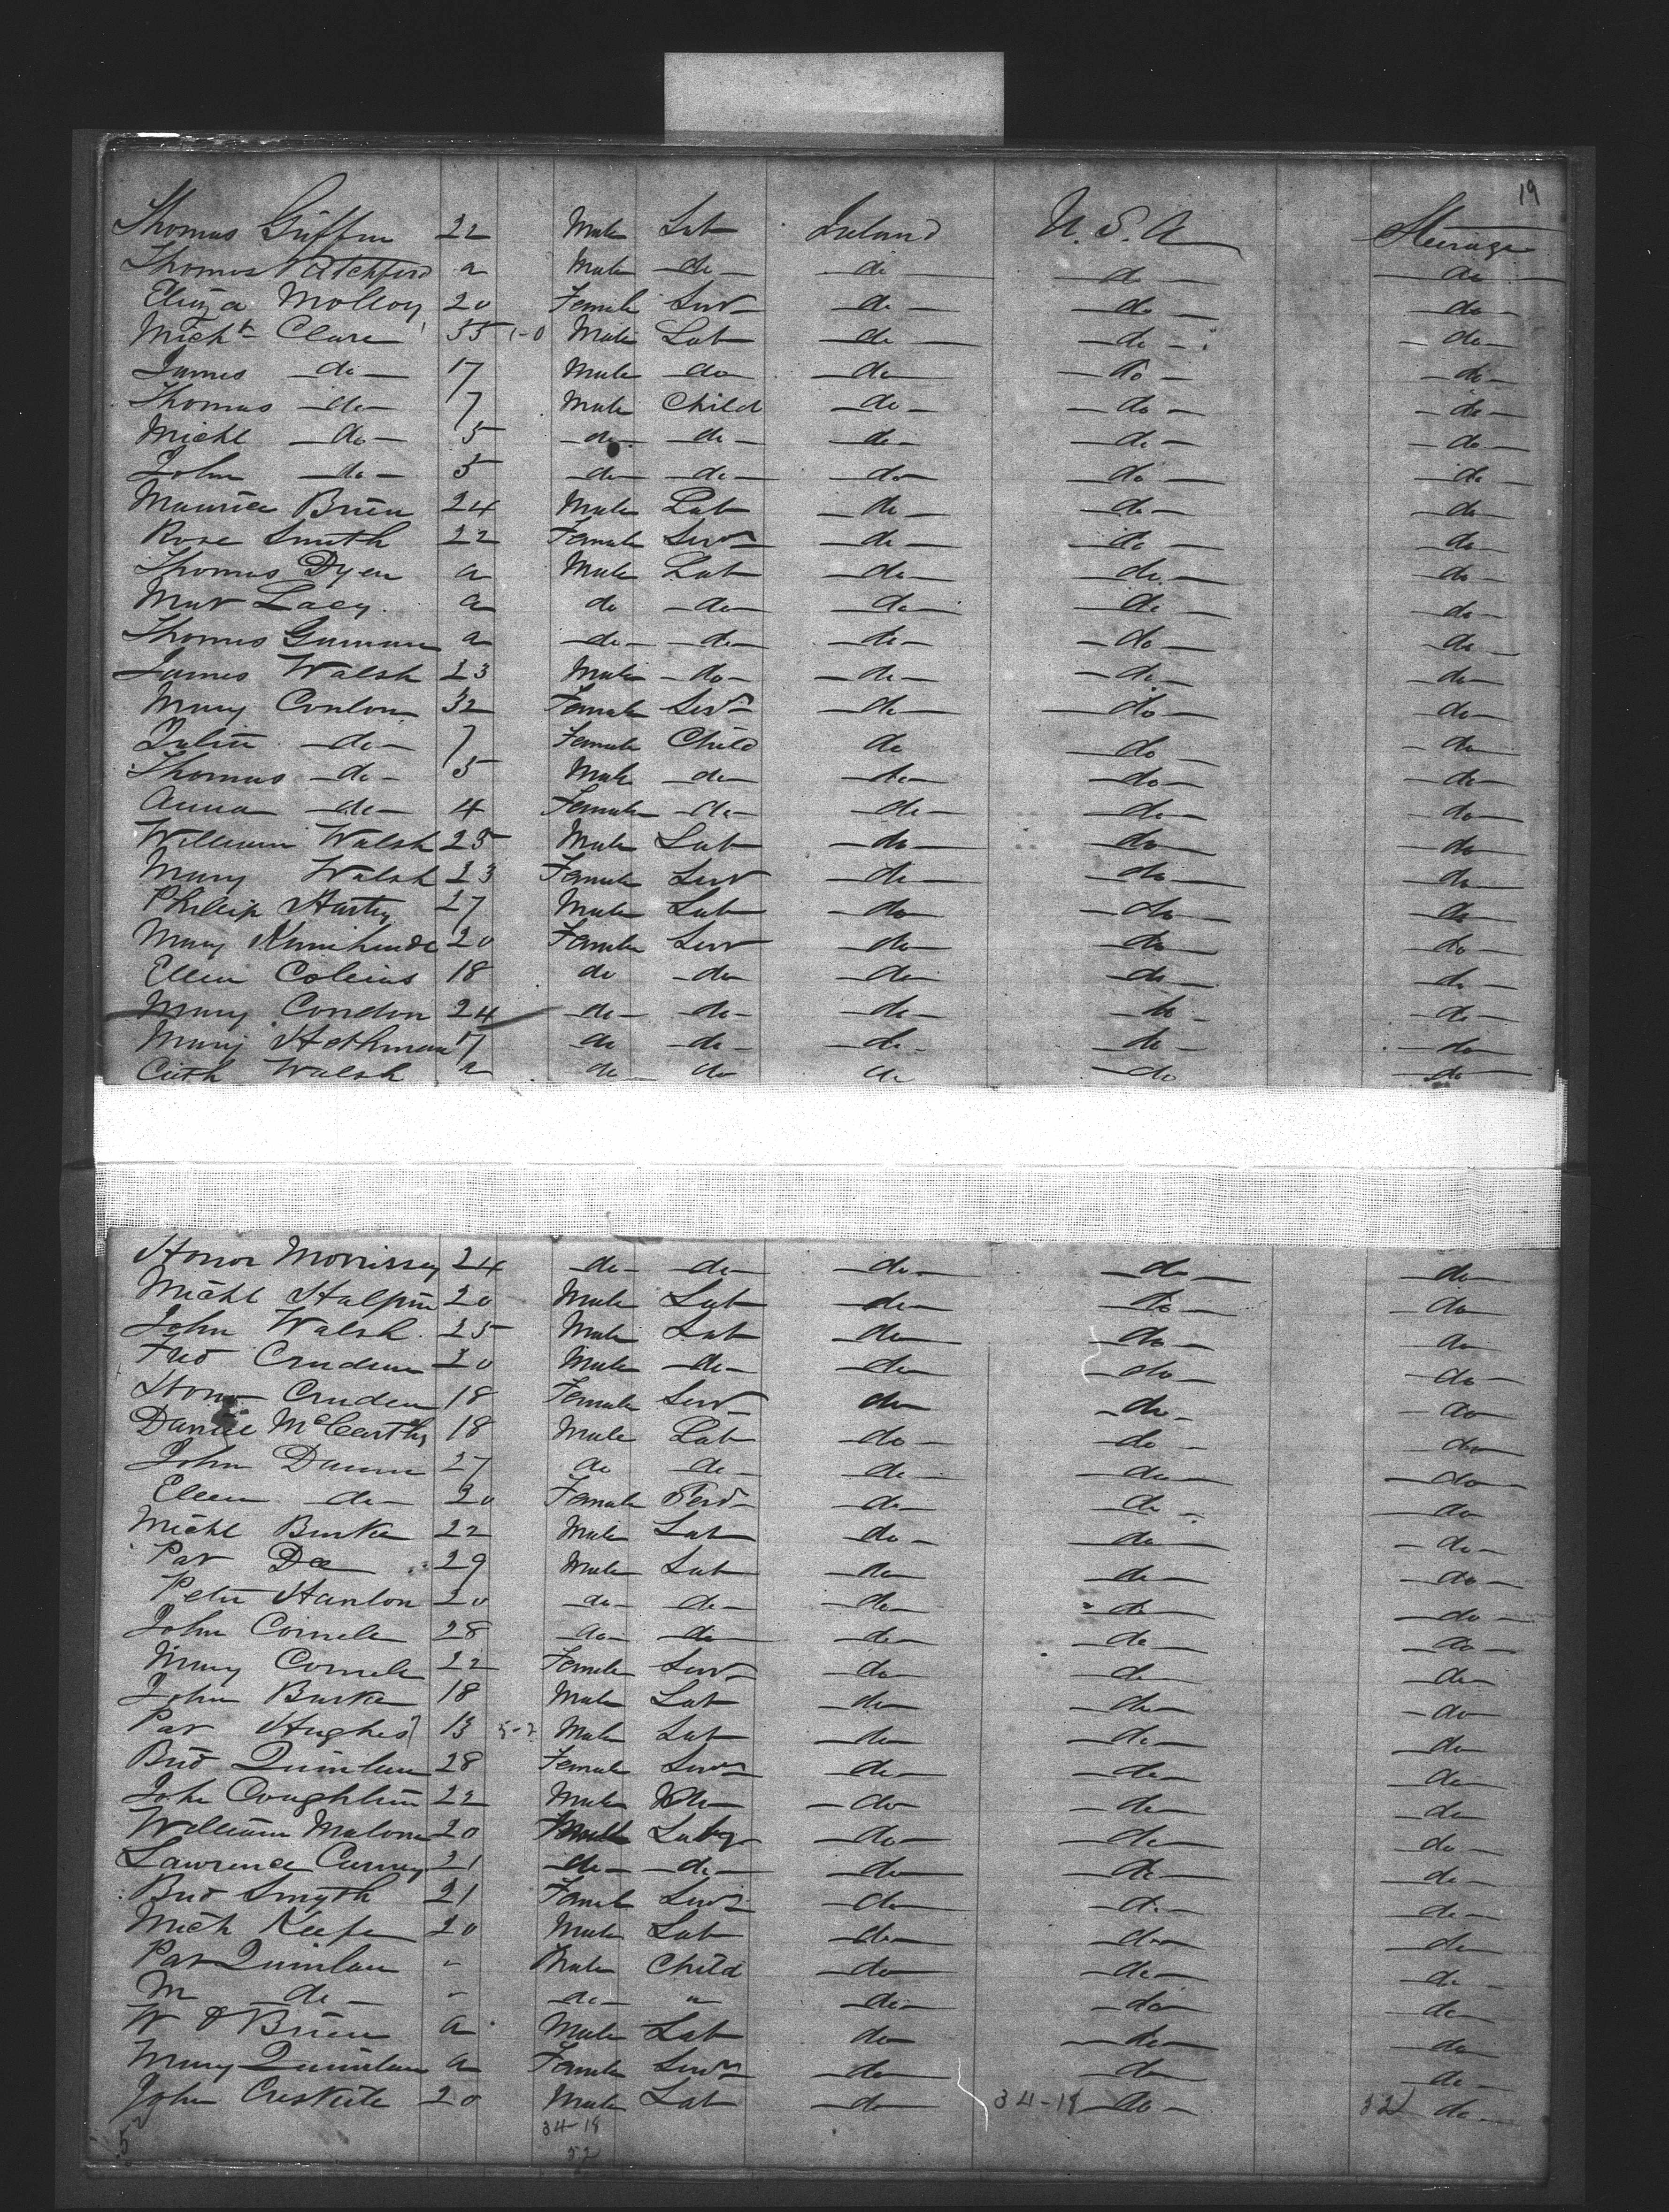 19
Thomas Griffin 22 Male Lab Ireland U.S.A Steerage
Thomas a Male do do do do
Eliza Molloy 20 Female Serv do do do
Michl Clare 35 Male Lab do do do
James do 17 Male do do do do
Thomas do 7 Male Child do do do
Michl do 5 do do do do do
John do 5 do do do do do
Maurice Brien 24 Male Lab do do do
Rose Smith 22 Female Serv do do do
Thomas Dyer a Male Lab do do do
Lacy a do do do do do
Thomas a do do do do do
James Walsh 23 Male do do do do
Mary Conlon 32 Female Serv do do do
Julia do 7 Female Child do do do
Thomas do 5 Male do do do do
Anna do 4 Female do do do do
William Walsh 25 Male Lab do do do
Mary Walsh 23 Female Serv do do do
Phillip 27 Male Lab do do do
Mary 20 Female Serv do do do
Ellen Colins 18 do do do do do
Mary Condon 24 do do do do do
Mary 17 do do do do do
Cath Walsh a do do do do do
Honor Morrissey 24 do do do do do
Michl Halpin 20 Male Lab do do do
John Walsh 25 Male Lab do do do
Cruden 20 Male do do do do
Cruden 18 Female Serv do do do
Daniel McCarthy 18 Male Lab do do do
John 27 do do do do do
Ellen do 20 Female Serv do do do
Michl Burke 22 Male Lab do do do
Pat Dee 29 Male Lab do do do
Peter Hanlon 20 do do do do do
John 28 do do do do do
Mary 22 Female Serv do do do
John Burke 18 Male Lab do do do
Pat Hughes 13 Male Lab do do do
Brid Quinlan 28 Female Serv do do do
John Coughlin 22 Male do do do
William Malone 20 do do do
Lawrence 21 do do do do do
Brid Smyth 21 Female Serv do do do
Mich Keefe 20 Male Lab do do do
Pat Quinlan " Male Child do do do
M do " do " do do do
W O Brien a Male Lab do do do
Mary Quinlan a Female Serv do do do
John 20 Male Lab do 34-18 do do
34-18
52